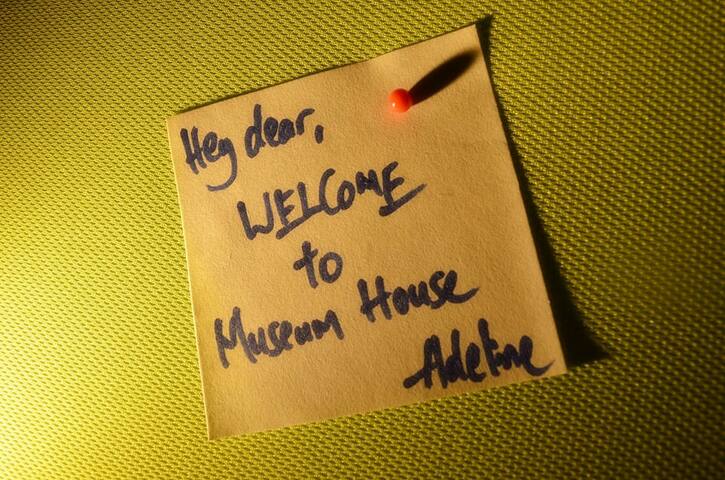 Hey dear,
WELCOME
to
Museum House
Adeline